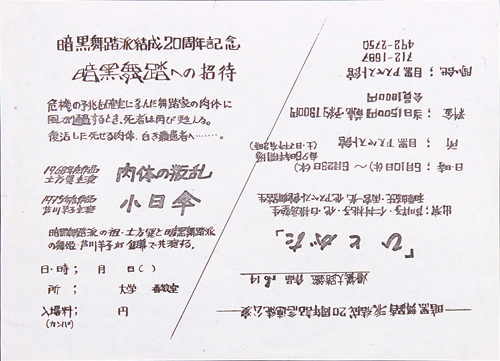 暗黒舞踏派結成20周年記念
暗黒舞踏への招待
危機の予兆を確実に孕んだ舞踏家の肉体に
風が通過するとき、死者は再び甦える。
復活した死せる肉体、白き癩患者へ……。
1968年作品
土方巽主演
肉体の叛乱
1975年作品
芦川羊子主演
小日傘
暗黒舞踏派の祖・土方巽と暗黒舞踏派
の舞姫・芦川羊子が会場で共演する。
日・時； 月 日( )
所 ； 大学 番教室
入場料； 円
(カンパ)
暗黒舞踏派結成20周年記念連続公演
作品 No.14
「ひとがた」
日・時； 5月10日(水)〜5月23日(火)
所 ； 目黒アスベスト館
料金 ； 当日1500円 予約1300円
会員1000円
問い合せ； 目黒アスベスト館
712-1687
492-2750